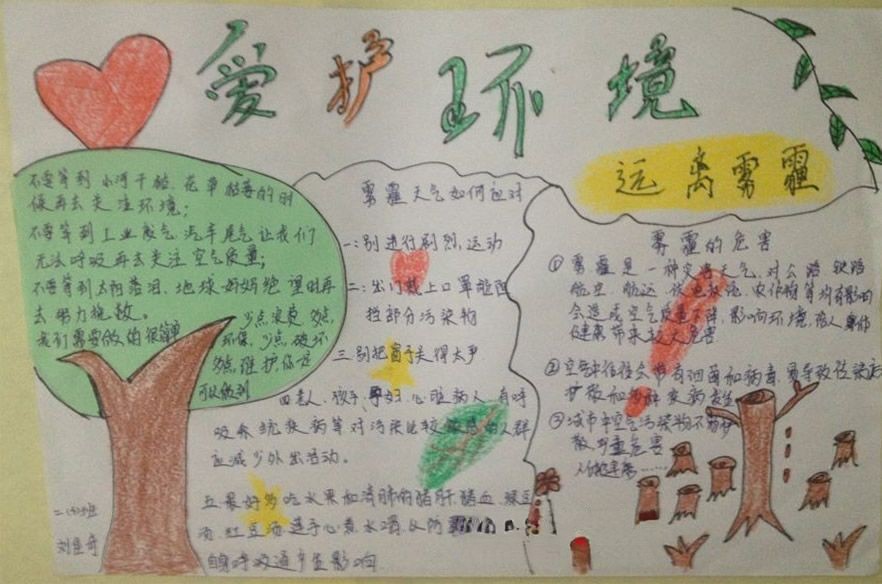 爱护环境
远离雾霾
不要等到小河干枯、花草枯萎的时
候再去关注环境;
不要等到工业废气、汽车尾气让我们
无法呼吸再去关注空气质量;
不要等到太阳落泪、地球妈妈绝望时再
去努力挽救。
我们需要做的很简单
少点浪费、多点
环保,少点破坏
多点维护,你一定
可以做到
二
班
刘
奇
雾霾天气如何应对
一:别进行剧烈运动
二:出门戴上口罩能阻
挡部分污染物
三别把窗子关得太严
四老人、孩子、孕妇、心脏病人、有呼
吸系统疾病等对污染比较敏感的人群
应减少外出活动。
五最好多吃水果和清肺的猪肝猪血、绿豆
汤、红豆汤莲子心煮水喝,以防
自身呼吸道产生影响.
雾霾的危害
① 雾霾是一种灾害天气,对公路、铁路
航空、航运、供电系统、农作物等均有影响
会造成空气质量下降,影响环境,给人
健康带来较大危害
② 空气中往往会带有细菌和病毒,易导致传染病
扩散和
③ 城市中空气污染物不易扩
散加重危害